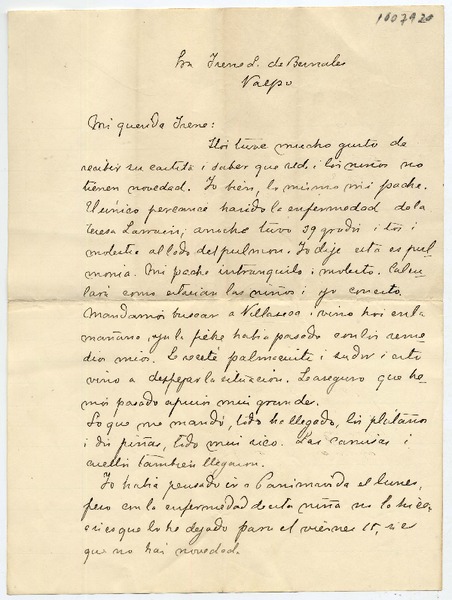 1007920
Sra Irene L. de Bernales
Valpo
Mi querida Irene:
Hoi tuve mucho gusto de
recibir su cartita i saber que Ud. i los niños no
tienen novedad. Yo bien, lo mismo mi padre.
El único percance ha sido la enfermedad de la
Teresa Larrain; anoche tuvo 39 grados i tos i
molestia al lado del pulmon. Yo dije esta es pul
monia. Mi padre intranquilo i molesto. Calcu
lará como estarian las niñas i yo
Mandamos buscar a Villaseca i vino hoi en la
mañana, ya la fiebre habia pasado con los reme
dios mios. Le recetó i sudor i
vino a despejar la situacion. Le aseguro que he
mos pasado apuros mui grande.
Lo que me mandó, todo ha llegado, los plátanos
i dos piñas, todo mui rico. Las camisas i
cuellos tambien llegaron.
Yo habia pensado ir a Panimavida el lunes,
pero con la enfermedad de esta niña no lo hice,
asi es que lo he dejado para el viernes 15, si es
que no hai novedad.